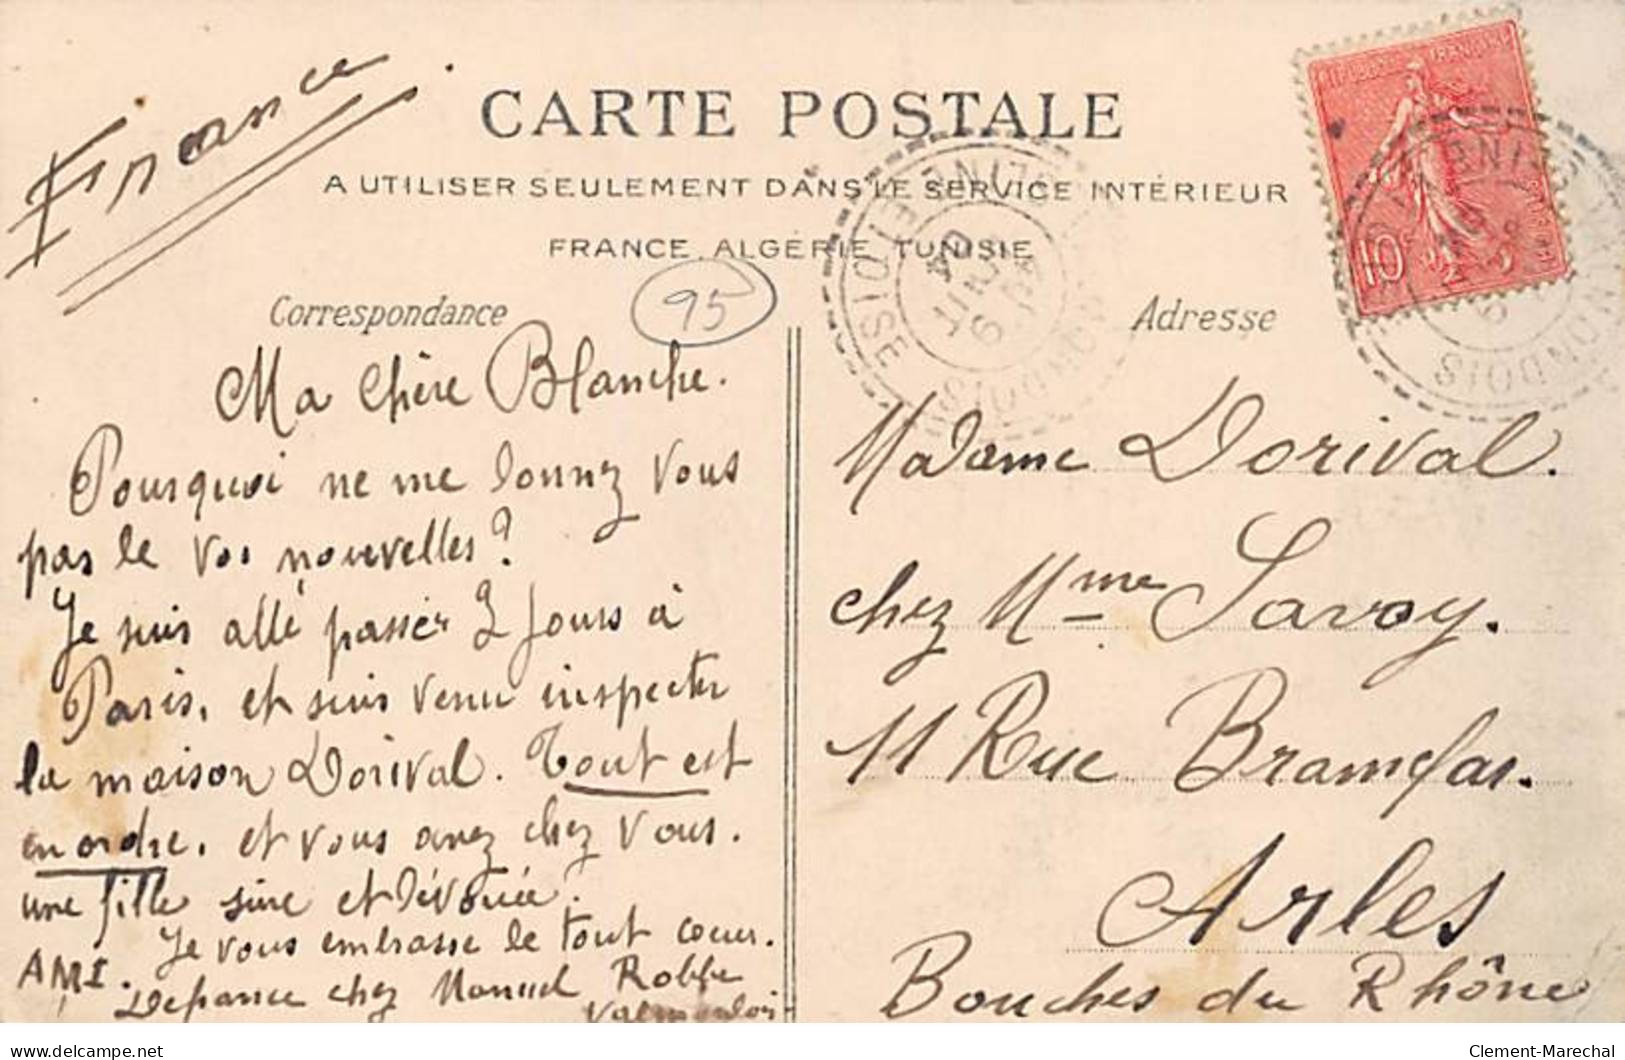 France
CARTE POSTALE
A UTILISER SEULEMENT DANS LE SERVICE INTÉRIEUR
FRANCE, ALGÉRIE, TUNISIE
Correspondance
95
Ma Chère Blanche.
Pourquoi ne me donnez vous
pas de vos nouvelles?
Je suis allé passer 2 jours à
Paris, et suis venu inspecter
la maison Dorival. Tout est
en ordre, et vous avez chez vous.
une fille sûre et dévouée.
Je vous embrasse de tout cœur.
AMI.
chez Manuel Robbe
Valmondois
Adresse
Madame Dorival.
chez Mme Savoy.
11 Rue Bramefar.
Arles
Bouches du Rhône
REPUBLIQUE FRANÇAISE
10
SEINE-ET-OISE
VALMONDOIS
delcampe.net
Clement-Marechal